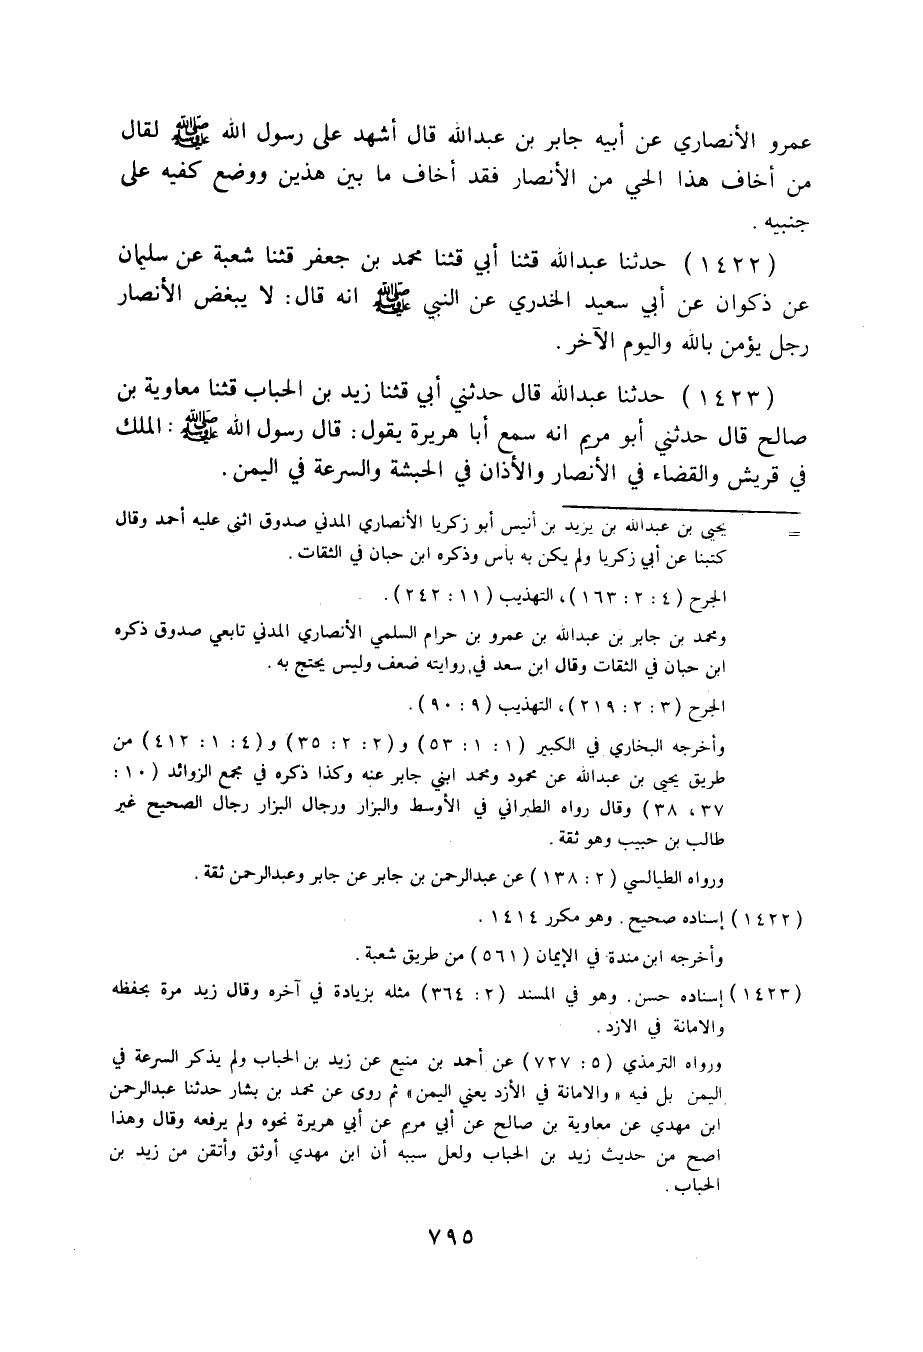 عمرو الأنصاري عن أبيه جابر بن عبدالله قال أشهد على رسول الله ﷺ لقال
من أخاف هذا الحي من الأنصار فقد أخاف ما بين هذين ووضع كفيه على
جنبيه .
(١٤٢٢) حدثنا عبدالله قثنا أبي قثنا محمد بن جعفر قثنا شعبة عن سليمان
عن ذكوان عن أبي سعيد الخدري عن النبي ﷺ انه قال: لا يبغض الأنصار
رجل يؤمن بالله واليوم الآخر .
(١٤٢٣) حدثنا عبدالله قال حدثني أبي قثنا زيد بن الحباب قثنا معاوية بن
صالح قال حدثني أبو مريم انه سمع أبا هريرة يقول: قال رسول الله ﷺ : الملك
في قريش والقضاء في الأنصار والأذان في الحبشة والسرعة في اليمن .
= يحيى بن عبدالله بن يزيد بن أنيس أبو زكريا الأنصاري المدني صدوق اثنى عليه أحمد وقال
كتبنا عن أبي زكريا ولم يكن به بأس وذكره ابن حبان في الثقات .
الجرح (٤ : ٢ : ١٦٣)، التهذيب (١١ : ٢٤٢) .
ومحمد بن جابر بن عبدالله بن عمرو بن حرام السلمي الأنصاري المدني تابعي صدوق ذكره
ابن حبان في الثقات وقال ابن سعد في روايته ضعف وليس يحتج به .
الجرح (٣ : ٢ : ٢١٩)، التهذيب (٩ : ٩٠) .
وأخرجه البخاري في الكبير (١ : ١ : ٥٣) و(٢ : ٢ : ٣٥) و(٤ : ١ : ٤١٢) من
طريق يحيى بن عبدالله عن محمود ومحمد ابني جابر عنه وكذا ذكره في مجمع الزوائد (١٠ :
٣٧ ، ٣٨) وقال رواه الطبراني في الأوسط والبزار ورجال البزار رجال الصحيح غير
طالب بن حبيب وهو ثقة .
ورواه الطيالسي (٢ : ١٣٨) عن عبدالرحمن بن جابر عن جابر وعبدالرحمن ثقة .
(١٤٢٢) إسناده صحيح . وهو مكرر ١٤١٤ .
وأخرجه ابن مندة في الإيمان (٥٦١) من طريق شعبة .
(١٤٢٣) إسناده حسن . وهو في المسند (٢ : ٣٦٤) مثله بزيادة في آخره وقال زيد مرة بحفظه
والامانة في الازد .
ورواه الترمذي (٥ : ٧٢٧) عن أحمد بن منيع عن زيد بن الحباب ولم يذكر السرعة في
اليمن بل فيه « والامانة في الأزد يعني اليمن » ثم روى عن محمد بن بشار حدثنا عبدالرحمن
ابن مهدي عن معاوية بن صالح عن أبي مريم عن أبي هريرة نحوه ولم يرفعه وقال وهذا
اصح من حديث زيد بن الحباب ولعل سببه أن ابن مهدي أوثق وأتقن من زيد بن
الحباب .
٧٩٥